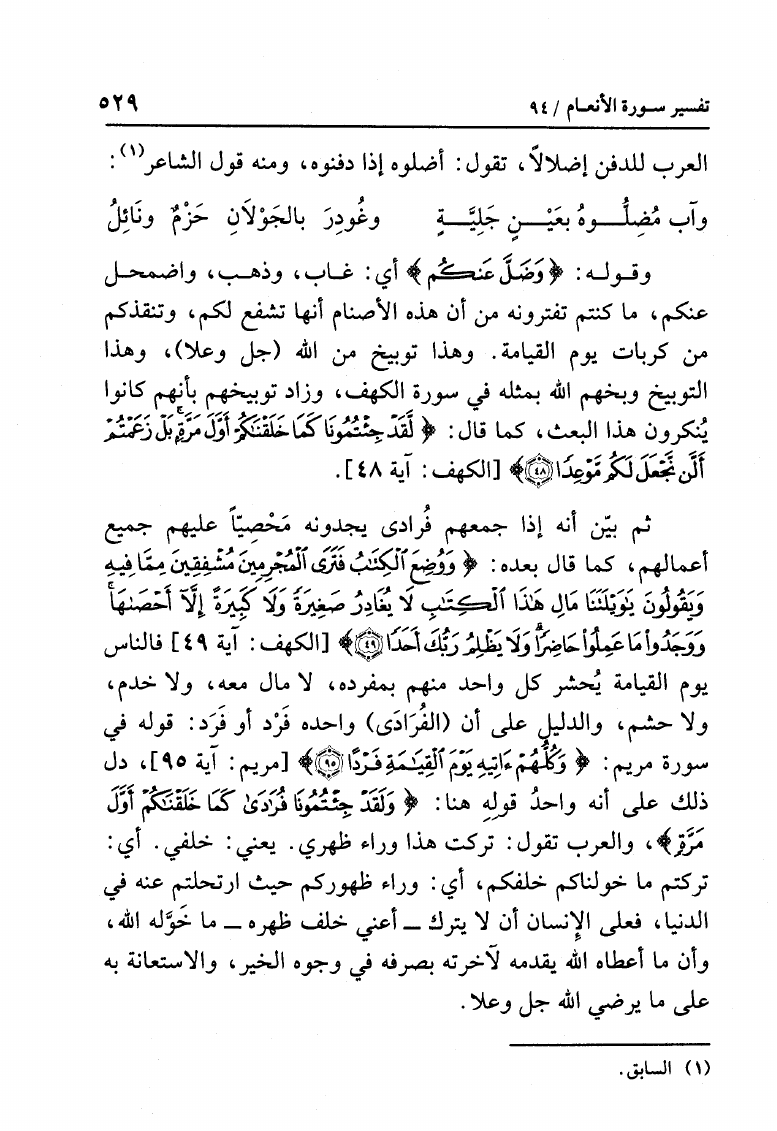 تفسير سورة الأنعام / ٩٤ ٥٢٩
العرب للدفن إضلالاً، تقول: أضلوه إذا دفنوه، ومنه قول الشاعر(١):
وآب مُضِلُّوهُ بعَيْنٍ جَلِيَّةٍ وغُودِرَ بالجَوْلاَنِ حَزْمٌ ونَائِلُ
وقوله: ﴿وَضَلَّ عَنكُم﴾ أي: غاب، وذهب، واضمحل
عنكم، ما كنتم تفترونه من أن هذه الأصنام أنها تشفع لكم، وتنقذكم
من كربات يوم القيامة. وهذا توبيخ من الله (جل وعلا)، وهذا
التوبيخ وبخهم الله بمثله في سورة الكهف، وزاد توبيخهم بأنهم كانوا
يُنكرون هذا البعث، كما قال: ﴿لَّقَدْ جِئْتُمُونَا كَمَا خَلَقْنَٰكُمْ أَوَّلَ مَرَّةٍۭ بَلْ زَعَمْتُمْ
أَلَّن نَّجْعَلَ لَكُم مَّوْعِدًا ٤٨﴾ [الكهف: آية ٤٨].
ثم بيّن أنه إذا جمعهم فُرادى يجدونه مَحْصِيّاً عليهم جميع
أعمالهم، كما قال بعده: ﴿وَوُضِعَ ٱلْكِتَٰبُ فَتَرَى ٱلْمُجْرِمِينَ مُشْفِقِينَ مِمَّا فِيهِ
وَيَقُولُونَ يَٰوَيْلَتَنَا مَالِ هَٰذَا ٱلْكِتَٰبِ لَا يُغَادِرُ صَغِيرَةً وَلَا كَبِيرَةً إِلَّآ أَحْصَىٰهَاۚ
وَوَجَدُوا۟ مَا عَمِلُوا۟ حَاضِرًاۗ وَلَا يَظْلِمُ رَبُّكَ أَحَدًا ٤٩﴾ [الكهف: آية ٤٩] فالناس
يوم القيامة يُحشر كل واحد منهم بمفرده، لا مال معه، ولا خدم،
ولا حشم، والدليل على أن (الفُرَادَى) واحده فَرْد أو فَرَد: قوله في
سورة مريم: ﴿وَكُلُّهُمْ ءَاتِيهِ يَوْمَ ٱلْقِيَٰمَةِ فَرْدًا ٩٥﴾ [مريم: آية ٩٥]، دل
ذلك على أنه واحدُ قوله هنا: ﴿وَلَقَدْ جِئْتُمُونَا فُرَٰدَىٰ كَمَا خَلَقْنَٰكُمْ أَوَّلَ
مَرَّةٍ﴾، والعرب تقول: تركت هذا وراء ظهري. يعني: خلفي. أي:
تركتم ما خولناكم خلفكم، أي: وراء ظهوركم حيث ارتحلتم عنه في
الدنيا، فعلى الإِنسان أن لا يترك ــ أعني خلف ظهره ــ ما خَوَّله الله،
وأن ما أعطاه الله يقدمه لآخرته بصرفه في وجوه الخير، والاستعانة به
على ما يرضي الله جل وعلا.
(١) السابق.